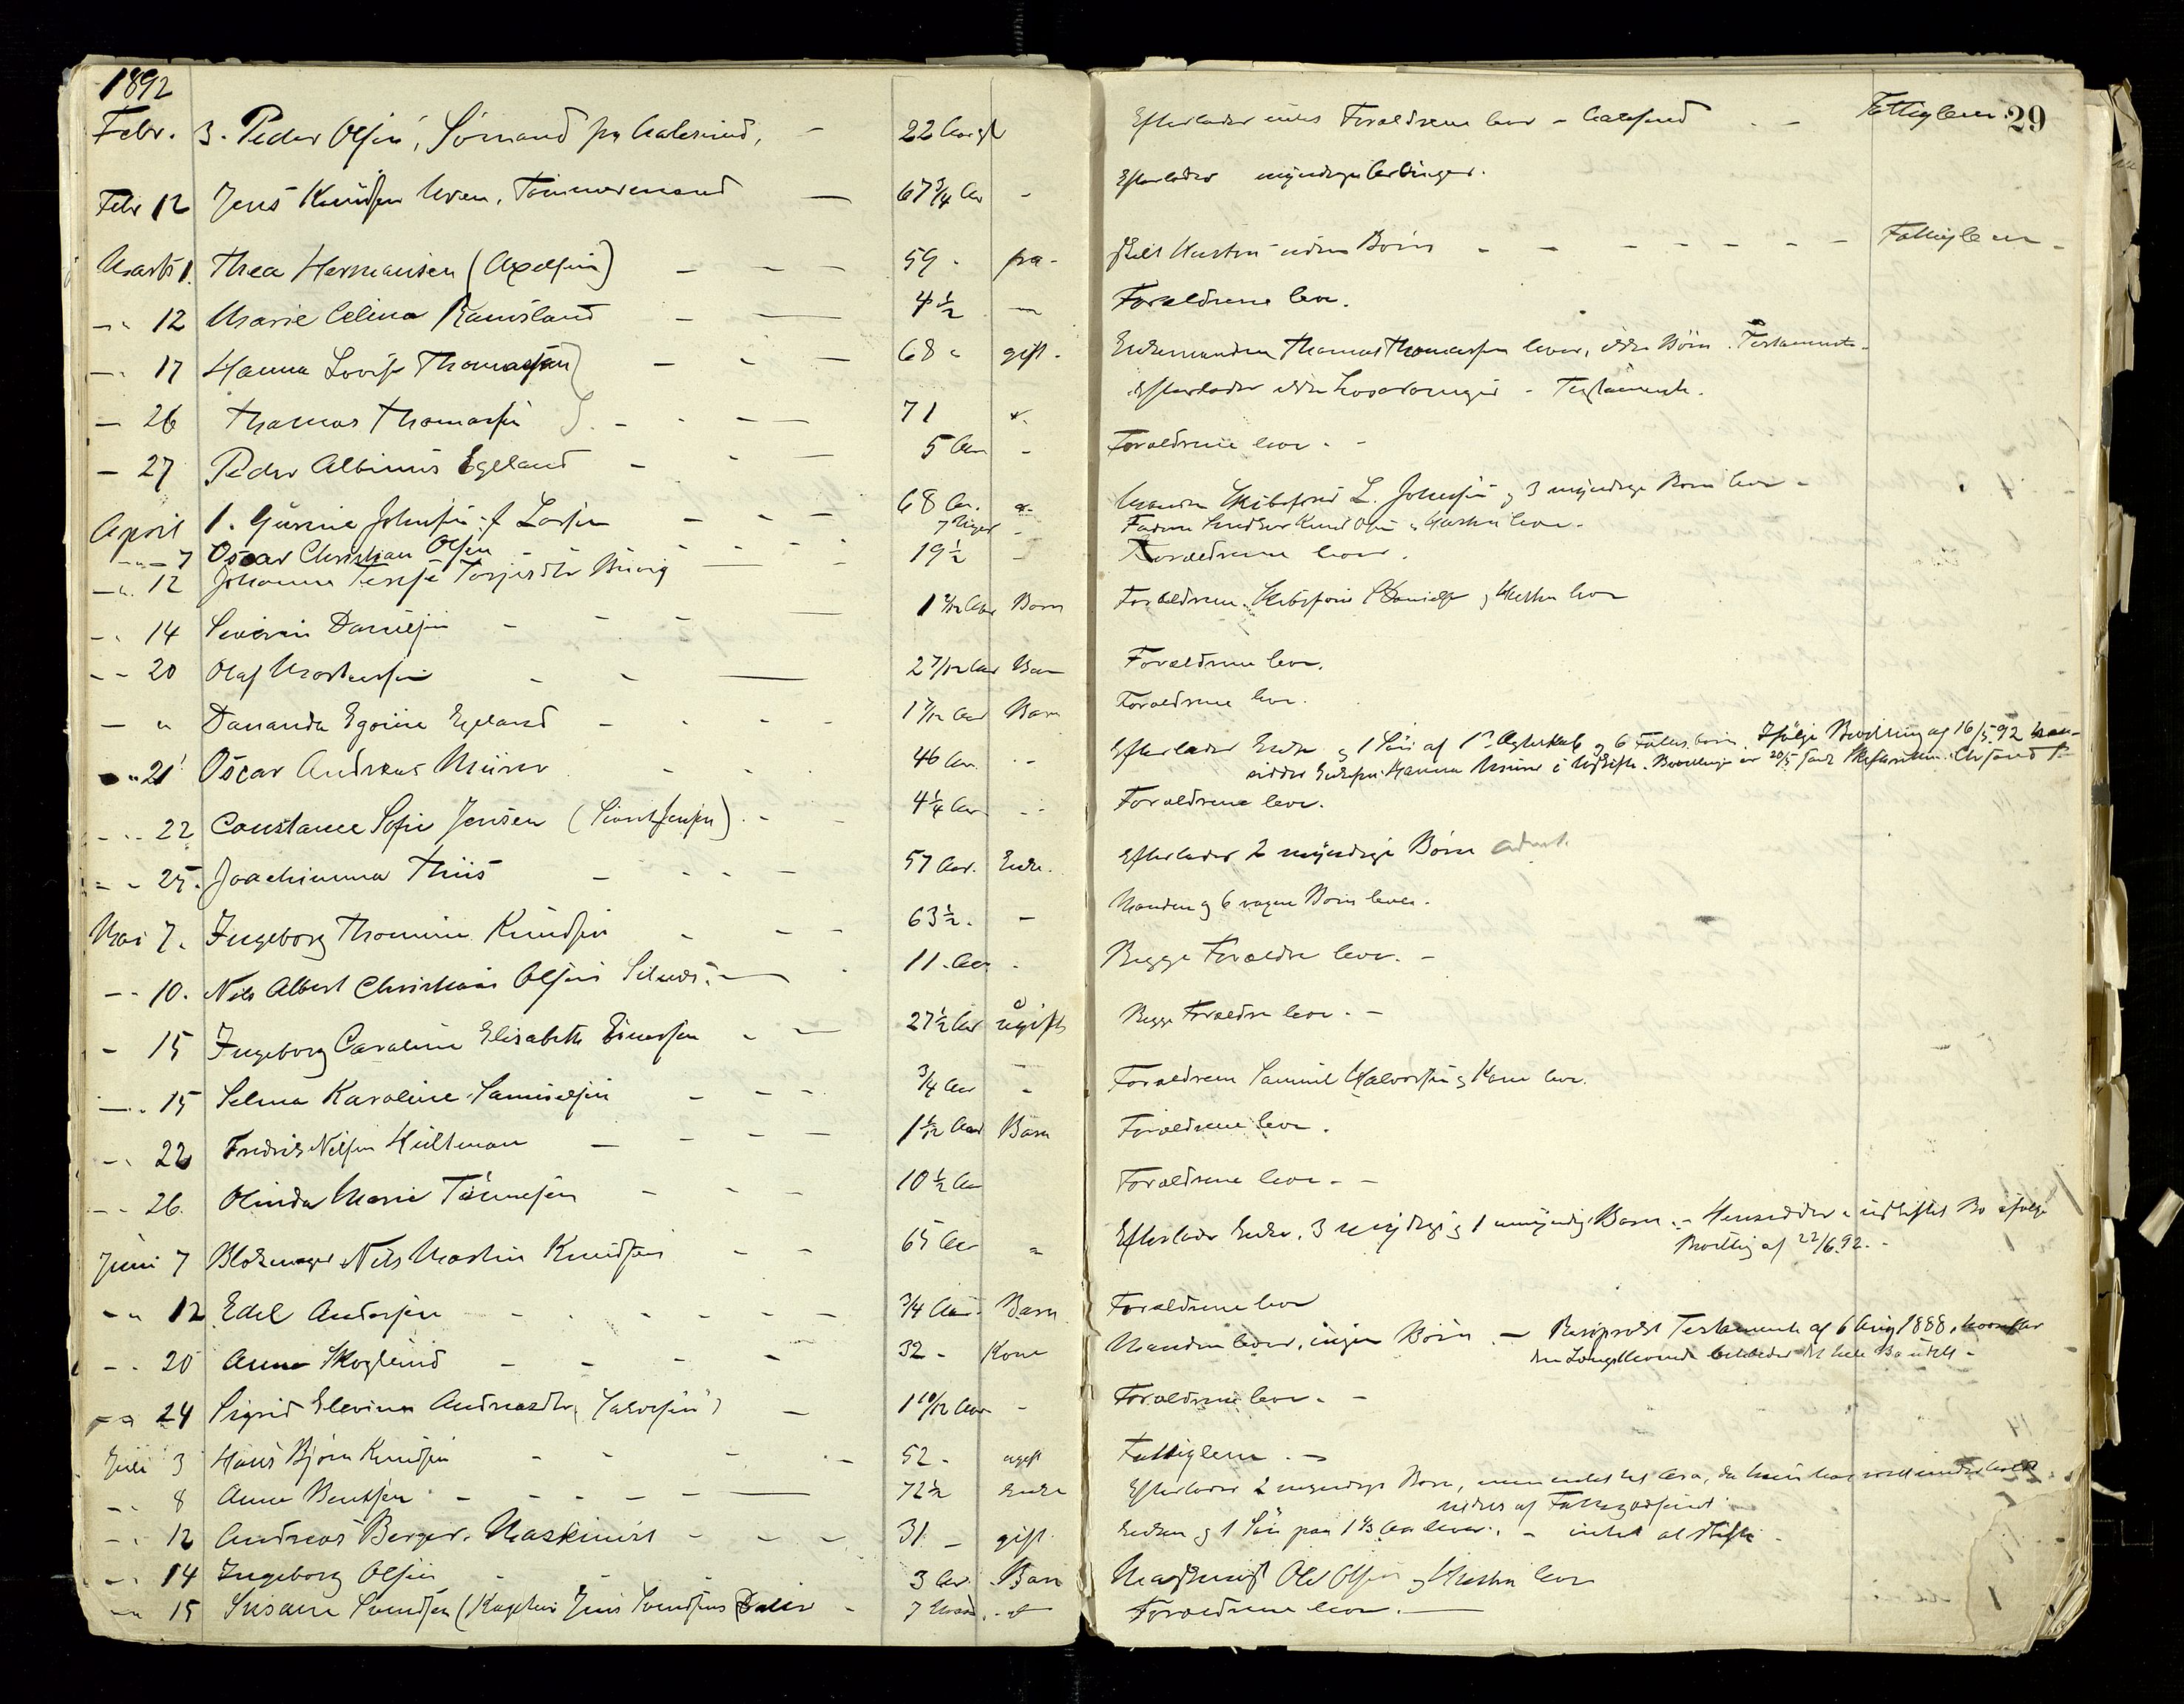 1892
29
Febr. 3. Peder Olsen, Sömand fra Aalesund, - 22 Aar gl Efterlader intet Forældrene lever - Aalesund - Fattiglem.
Febr 12 Jens Knudsen Uren, Tömmermand - 67 3/4 Aar - Efterlader myndige Arvinger.
Marts 1. Thea Hermansen (Axelsen) - - - 59 - fra - skilt Hustru uden Börn - - - - - - - Fattiglem -
-" 12 Marie Celina Ramsland - - 4 1/2 - Forældrene lever.
-" 17 Hanna Lovise Thomassen - - - 68 " gift - Enkemanden Thomas Thomassen lever, ikke Börn. Testamente.
- 26 Thomas Thomassen - - - 71 Efterlader ikke Livsarvinger - Testamente.
- 27 Peder Albinus Egeland - - - 5 Aar - Forældrene lever - -
April 1. Gurine Johnsen f. Larsen - - - 68 Aar. Manden Skibsförer L. Johnsen og 3 myndige Börn lever -
-"- 7 Oscar Christian Olsen - - - - 7 Uger - Faderen Knud Olsen og Hustru lever -
-". 12 Johanne Terese Torjesdtr - - 19 1/2 - Forældrene lever.
-" 14 Severin Danielsen - - - 1 Aar Barn Forældrene, Skibsförer Danielsen og Hustru lever
- - 20 Olaf Mortensen - - - 2 7/12 Aar Barn Forældrene lever.
- " Dananda Egeland - - - - 1 7/12 Aar Barn Forældrene lever.
" 21 Oscar Andreas Murer - - - 46 Aar. - Efterlader Enke og 1 Sön af 1st Ægteskab og 6 Fællesbörn. Ifölge Bevilling af 16/5 92 hen-
sidder Enkefru Hanna Murer i uskifte. Bevillingen er 20/5 sendt Chrsand S.
- .. 22 Constance Sofie Jensen - - 4 1/4 Aar - - Forældrene lever.
= - 25. Joachimma Thiis - - - - 57 Aar. Enke. Efterlader 2 myndige Börn
Mai 7. Ingeborg Thomine Knudsen - - - 63 1/2. - Manden og 6 voxne Börn lever.
-- 10. Nils Albert Christian Olsen - - 11. Aar - Begge Forældre lever. -
- 15 Ingeborg Caroline Elisabeth Einersen - - 27 1/2 Aar ugift Begge Forældre lever. -
-.. 15 Selma Karoline Samuelsen - - - 3/4 Aar - Forældrene Samuel Halvorsen og Kone lever.
-. 22 Fredrik Nilsen Hultman - - - - 1 1/12 Aar Barn Forældrene lever.
- - 26. Olinda Marie Tönnesen - - - 10 1/2 Aar Forældrene lever - -
Juni 7 Blokmager Nils Martin Knudsen - - 65 Aar " Efterlader Enke, 3 myndige og 1 umyndig Barn. - Hensidder i uskiftet Bo ifölge
Bevilling af 22/6.92. -
- " 12 Edel Andersen - - - - - 3/4 Aar - Barn Forældrene lever
- - 20 Anna Skoglund - - - - 32 - Kone Manden lever, ingen Börn. - Reciprokt Testamente af 6 Aug 1888, hvorefter
den Længstlevende beholder det hele Bo udelt -
24 Sigrid Elevine Andreasdtr - 1 10/12 Aar - Forældrene lever - -
Juli 3 Hans Björn Knudsen - - - - 52 - ugift Fattiglem. -
-. 8 Anne Bentsen - - - - - 72 1/2 Enke Efterlader 2 myndige Börn, men intet at arve, da hun har været underholdt
af Fattigvæsenet.
- . 12 Andreas Berger. Maskinist - - - 31 - gift. Enken og 1 Sön paa 1 1/3 Aar lever. - intet at skifte -
-. 14 Ingeborg Olsen - - 3 Aar. Barn Maskinist Ole Olsen og Hustru lever
-" 15 Susanne Svendsen (Jens Svendsens Datter - 7 Forældrene lever. -